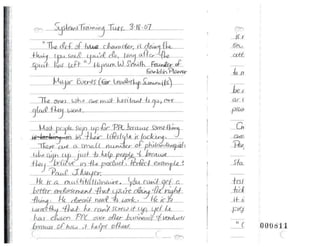 Systems Training Tues. 3-18-07
"The def. of true character, is doing the
thing you said you'd do, long after the
spirit has left." Hyrum W Smith Founder of
Franklin Planner
Major Events (for Leadership Summits)
The ones who are most hesitant to go, are
glad they went.
Most people sign up for PPL because something
is lacking in their lifestyle is lacking.
There are a small number of philanthropists
who sign up just to help people & because
they "believe" in the product. Perfect example:
Paul J. Meyer.
He is a multi-billionaire. You can't get a
better endorsement that you're doing the right
thing. He doesn't need to work. He is so
wealthy that he can't screw it up, yet he
has chosen PPL over other business & products
because of how it helps others.
000611